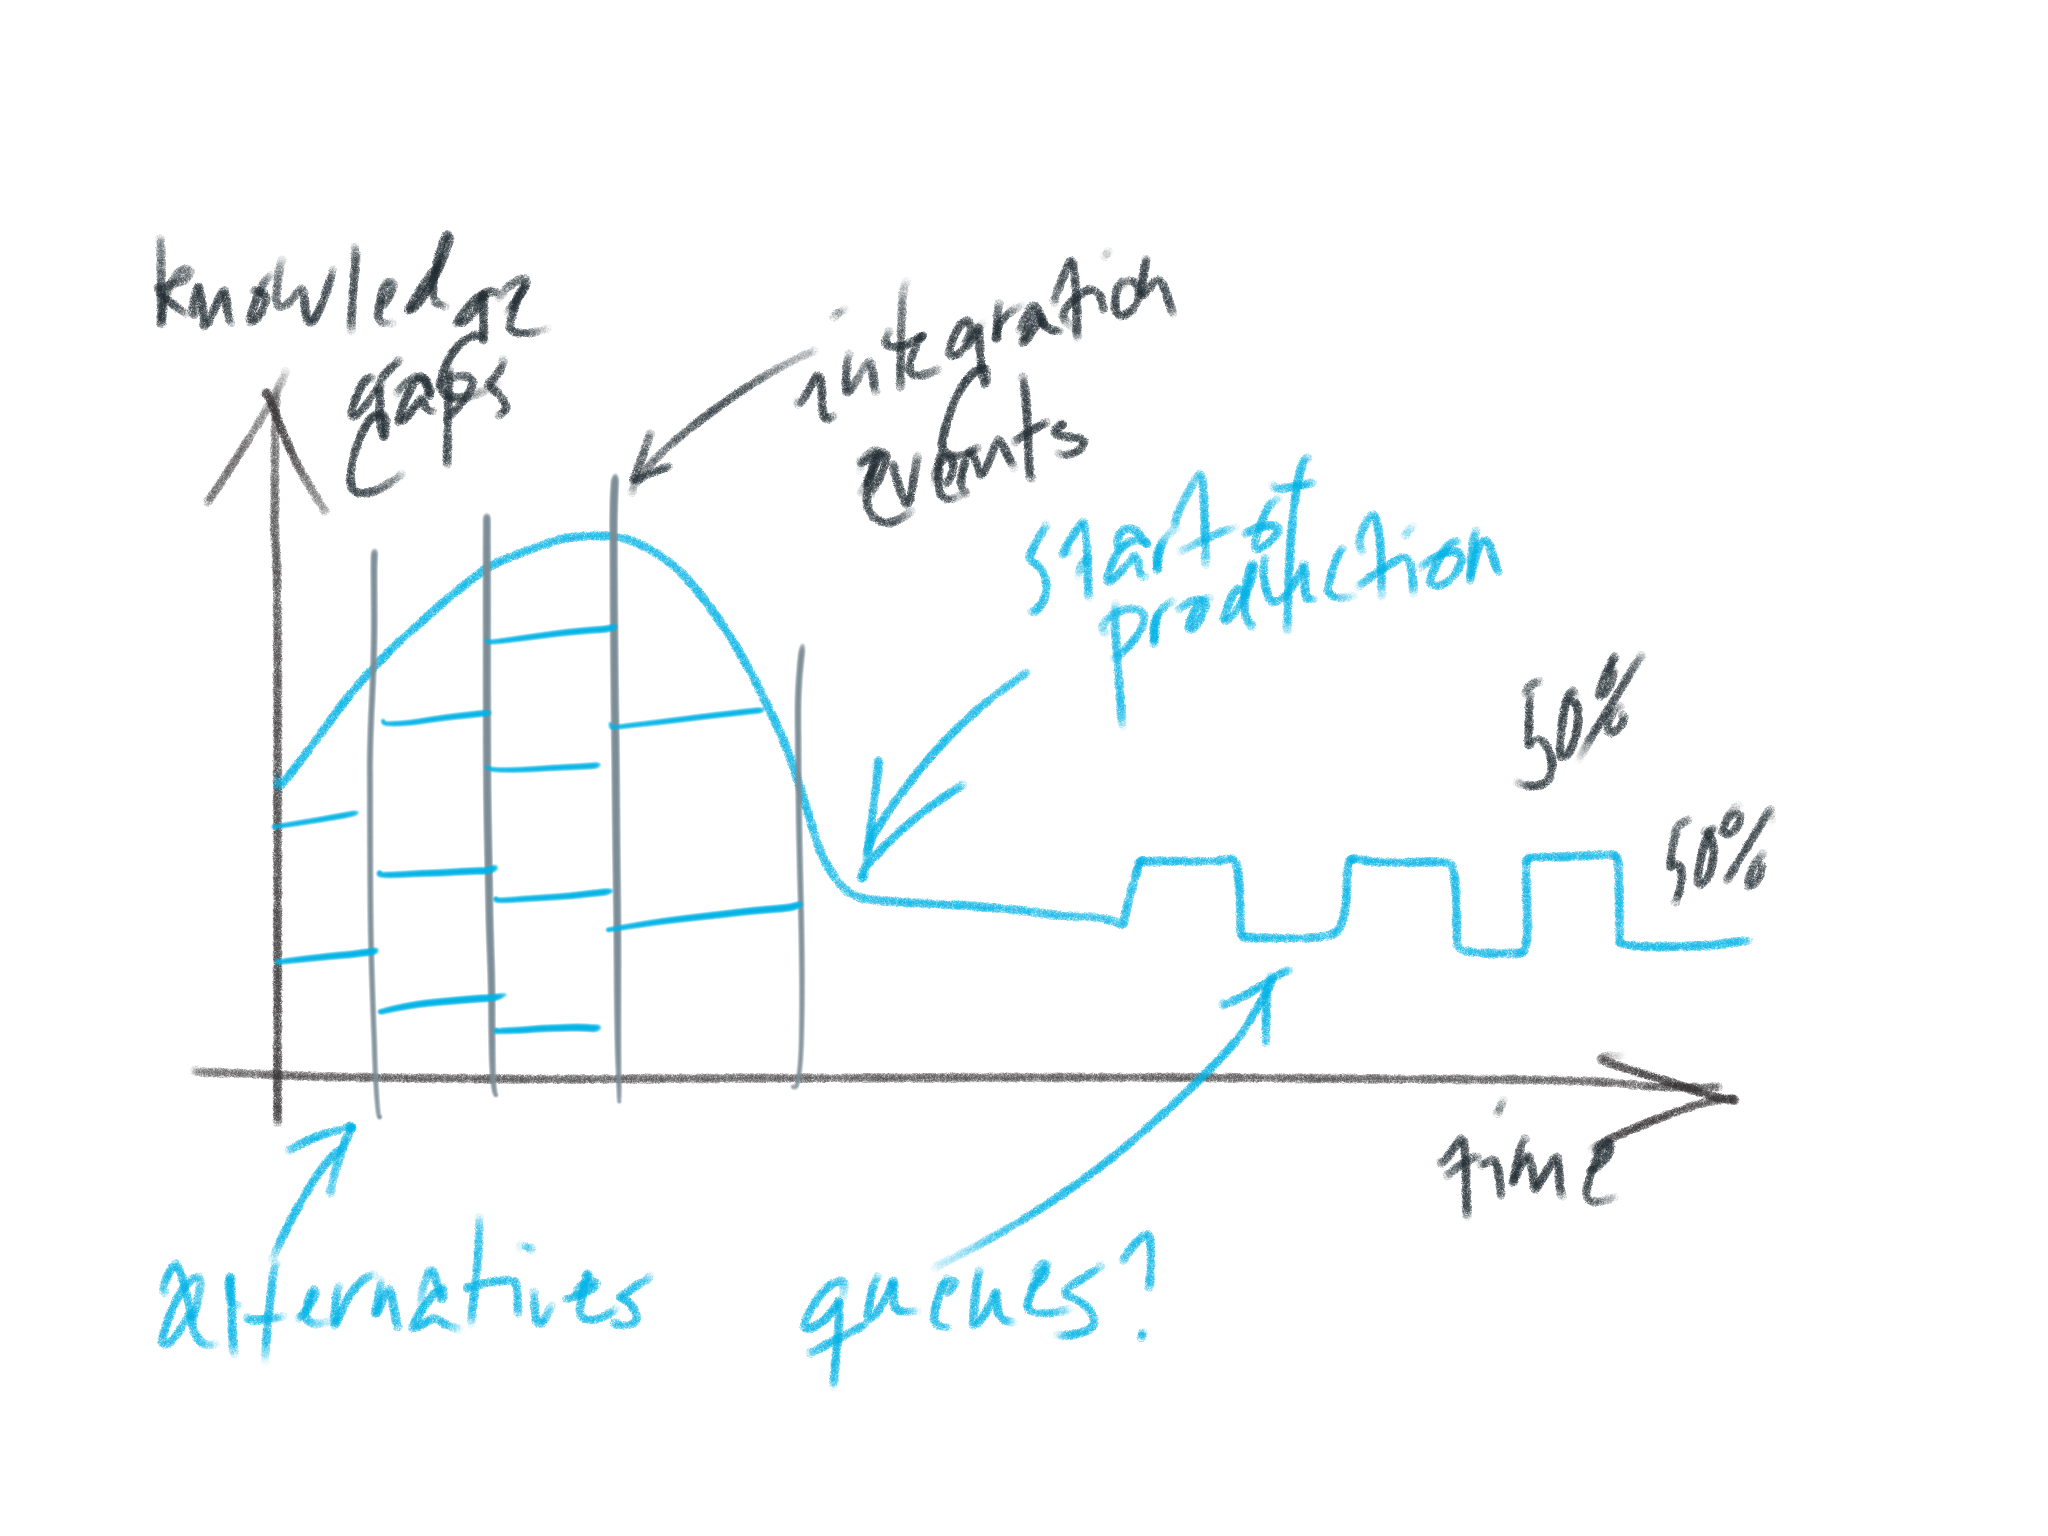 knowledge
gaps
integration
events
start of
production
50%
50%
time
alternatives
queues?